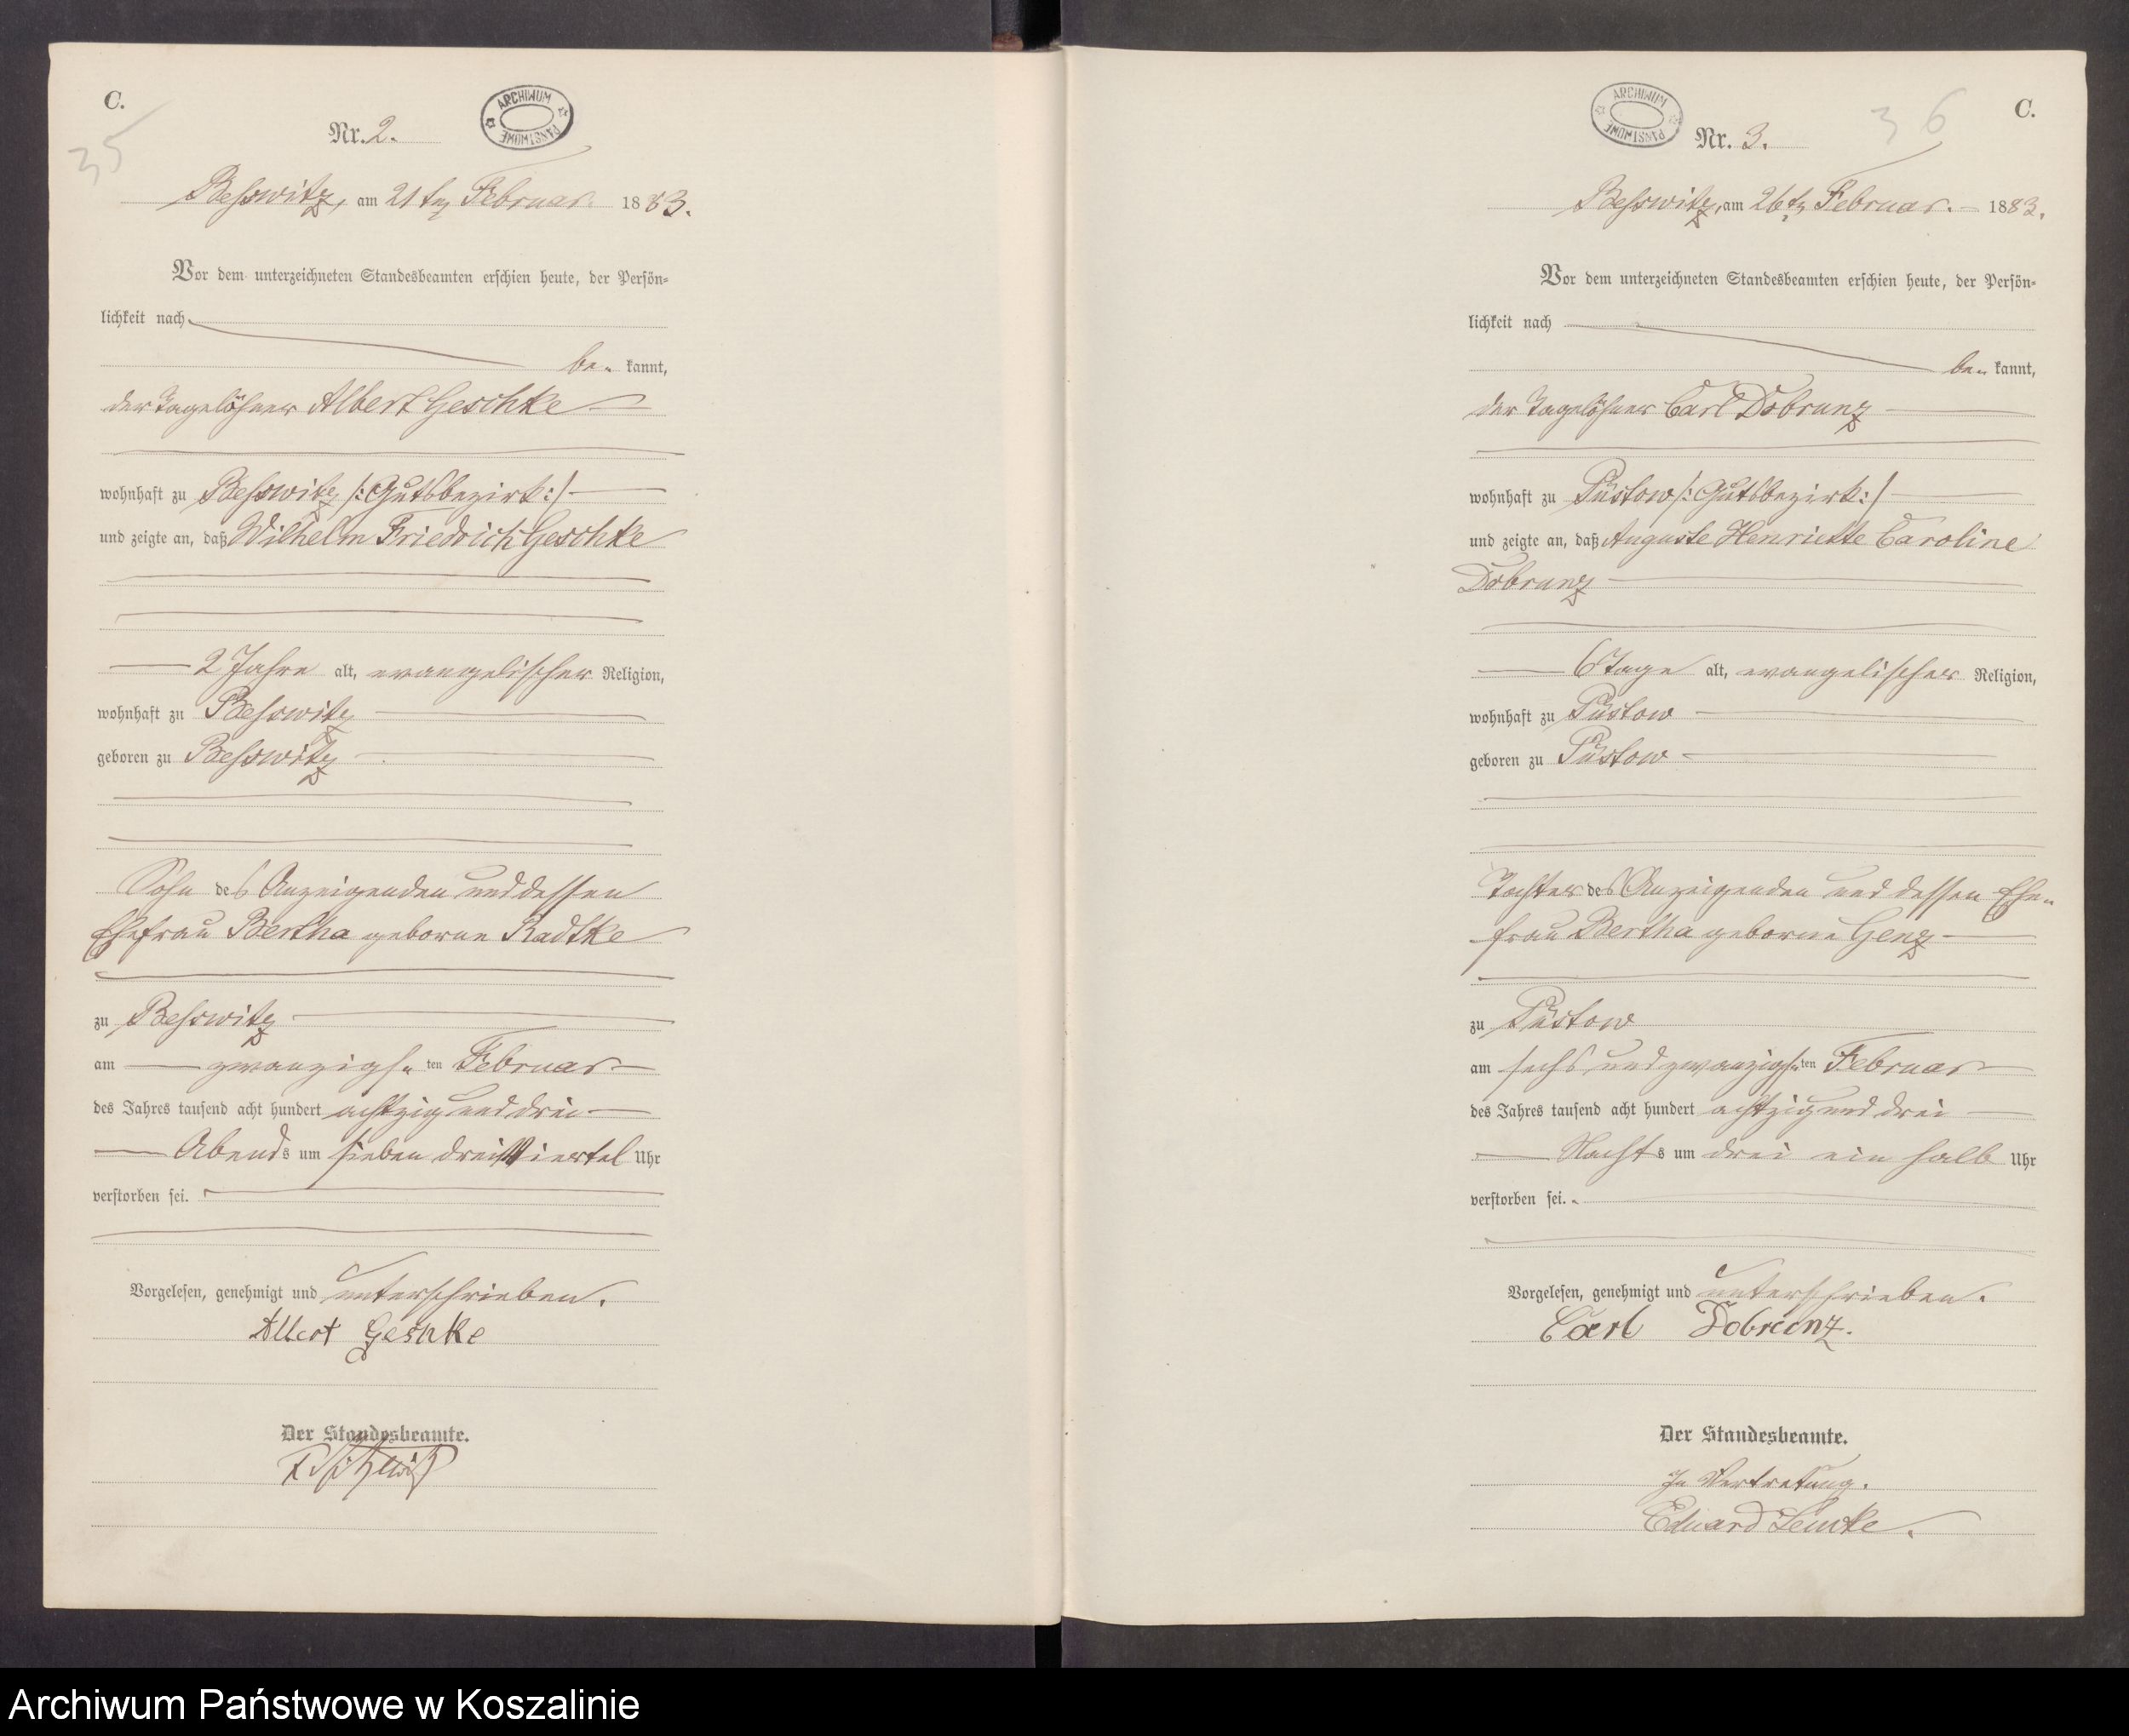 C.
35
Nr. 2.
ARCHIWUM PAŃSTWOWE
Besswitz, am 21ten Februar 1883.
Vor dem unterzeichneten Standesbeamten erschien heute, der Persön-
lichkeit nach
be- kannt,
der Tagelöhner Albert Geschke
wohnhaft zu Besswitz /: Gutsbezirk :/
und zeigte an, daß Wilhelm Friedrich Geschke
2 Jahre alt, evangelischer Religion,
wohnhaft zu Besswitz
geboren zu Besswitz
Sohn des Anzeigenden und dessen
Ehefrau Bertha geborne Radtke
zu Besswitz
am zwanzigs- ten Februar
des Jahres tausend acht hundert achtzig und drei
Abends um sieben dreiviertel Uhr
verstorben sei.
Vorgelesen, genehmigt und unterschrieben.
Albert Geschke
Der Standesbeamte.
C.
36
ARCHIWUM PAŃSTWOWE
Nr. 3.
Besswitz, am 26ten Februar. 1883.
Vor dem unterzeichneten Standesbeamten erschien heute, der Persön-
lichkeit nach
be- kannt,
der Tagelöhner Carl Dobrunz
wohnhaft zu Püstow /: Gutsbezirk :/
und zeigte an, daß Auguste Henriette Caroline
Dobrunz
6 Tage alt, evangelischer Religion,
wohnhaft zu Püstow
geboren zu Püstow
Tochter des Anzeigenden und dessen Ehe-
frau Bertha geborne Genz
zu Püstow
am sechs und zwanzigs- ten Februar
des Jahres tausend acht hundert achtzig und drei
Nachts um drei ein halb Uhr
verstorben sei.
Vorgelesen, genehmigt und unterschrieben.
Carl Dobrunz.
Der Standesbeamte.
In Vertretung.
Eduard Lemke.
Archiwum Państwowe w Koszalinie